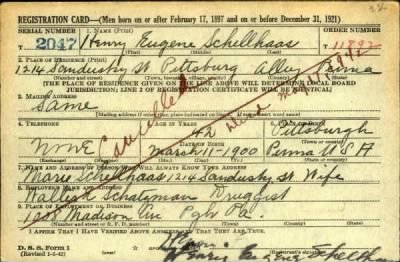 REGISTRATION CARD—(Men born on or after February 17, 1897 and on or before December 31, 1921)
SERIAL NUMBER 1. NAME (Print) ORDER NUMBER
2047 Henry Eugene Schellhaas 11892
2. PLACE OF RESIDENCE (Print)
1214 Sandusky St Pittsburg Penna
[THE PLACE OF RESIDENCE GIVEN ON THE LINE ABOVE WILL DETERMINE LOCAL BOARD
JURISDICTION; LINE 2 OF REGISTRATION CERTIFICATE WILL BE IDENTICAL]
3. MAILING ADDRESS
Same
Cancelled Dead
4. TELEPHONE 5. AGE IN YEARS 6. PLACE OF BIRTH
NONE 42 Pittsburgh
DATE OF BIRTH
March 11 1900 Penna U S A
7. NAME AND ADDRESS OF PERSON WHO WILL ALWAYS KNOW YOUR ADDRESS
Marie Schellhaas 1214 Sandusky St. Wife
8. EMPLOYER'S NAME AND ADDRESS
Druggist
9. PLACE OF EMPLOYMENT OR BUSINESS
1908 Madison Ave Pgh Pa.
I AFFIRM THAT I HAVE VERIFIED ABOVE ANSWERS AND THAT THEY ARE TRUE.
D. S. S. Form 1
(Revised 1-1-42)
Eugene Schellhaas